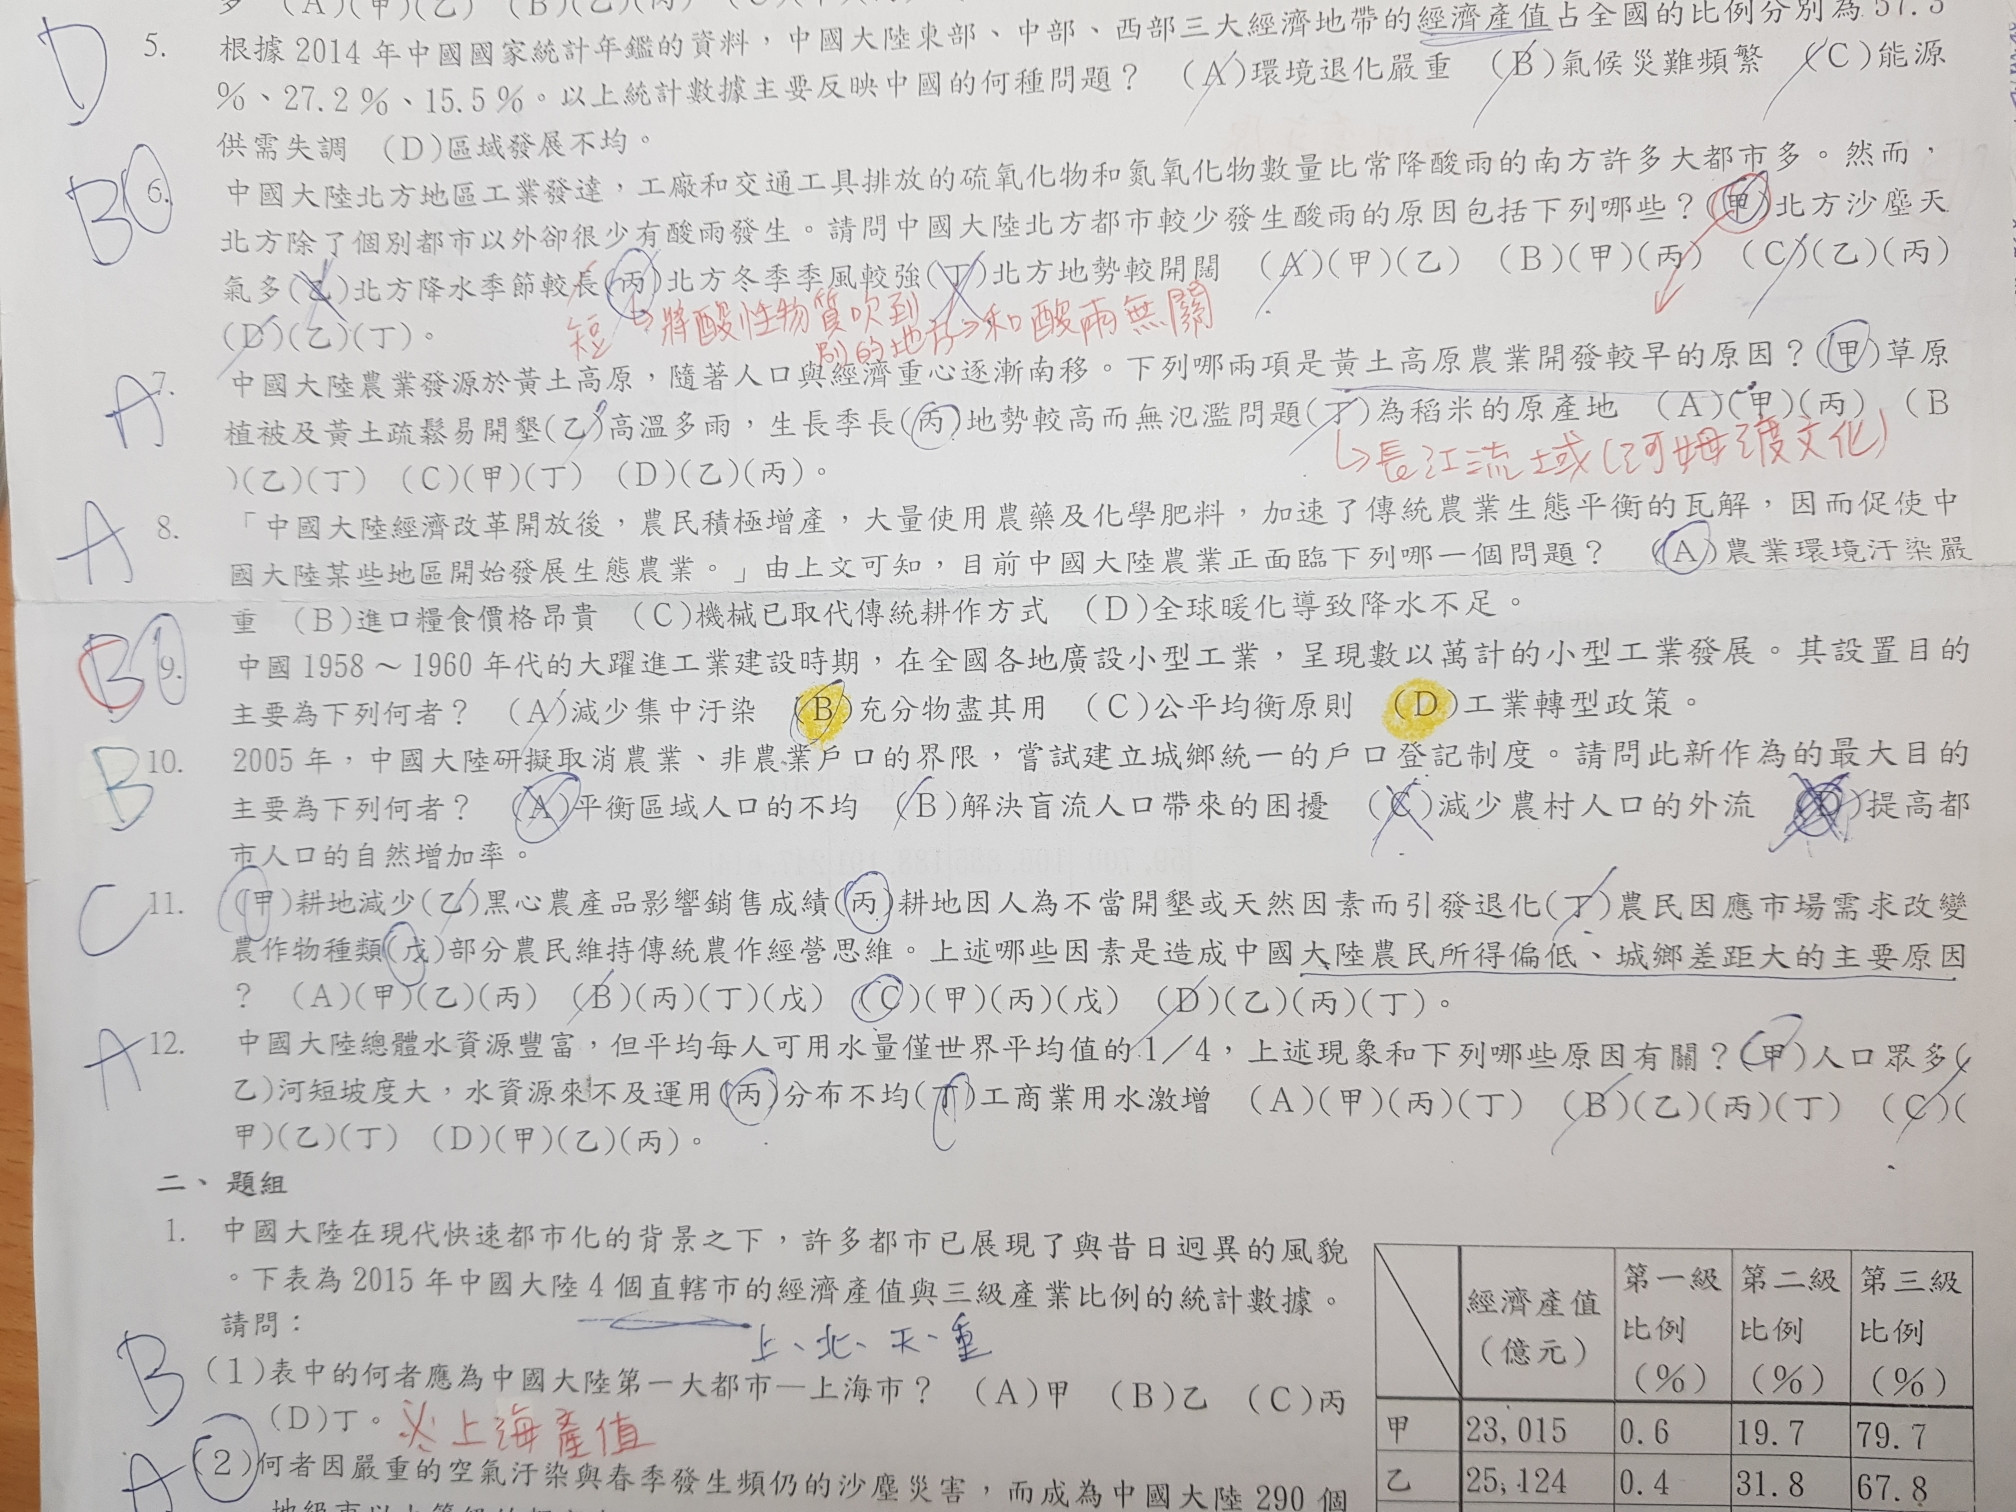 多 (A)(甲)(乙) (B)(乙)(丙)
D 5. 根據2014年中國國家統計年鑑的資料，中國大陸東部、中部、西部三大經濟地帶的經濟產值占全國的比例分別為57.3
%、27.2%、15.5%。以上統計數據主要反映中國的何種問題？ (A)環境退化嚴重 (B)氣候災難頻繁 (C)能源
供需失調 (D)區域發展不均。
B 6. 中國大陸北方地區工業發達，工廠和交通工具排放的硫氧化物和氮氧化物數量比常降酸雨的南方許多大都市多。然而，
北方除了個別都市以外卻很少有酸雨發生。請問中國大陸北方都市較少發生酸雨的原因包括下列哪些？(甲)北方沙塵天
氣多(乙)北方降水季節較長(丙)北方冬季季風較強(丁)北方地勢較開闊 (A)(甲)(乙) (B)(甲)(丙) (C)(乙)(丙)
(D)(乙)(丁)。
短 →將酸性物質吹到
別的地方→和酸雨無關
A 7. 中國大陸農業發源於黃土高原，隨著人口與經濟重心逐漸南移。下列哪兩項是黃土高原農業開發較早的原因？(甲)草原
植被及黃土疏鬆易開墾(乙)高溫多雨，生長季長(丙)地勢較高而無氾濫問題(丁)為稻米的原產地 (A)(甲)(丙) (B
)(乙)(丁) (C)(甲)(丁) (D)(乙)(丙)。
↳長江流域(河姆渡文化)
A 8. 「中國大陸經濟改革開放後，農民積極增產，大量使用農藥及化學肥料，加速了傳統農業生態平衡的瓦解，因而促使中
國大陸某些地區開始發展生態農業。」由上文可知，目前中國大陸農業正面臨下列哪一個問題？ (A)農業環境汙染嚴
重 (B)進口糧食價格昂貴 (C)機械已取代傳統耕作方式 (D)全球暖化導致降水不足。
B 9. 中國1958～1960年代的大躍進工業建設時期，在全國各地廣設小型工業，呈現數以萬計的小型工業發展。其設置目的
主要為下列何者？ (A)減少集中汙染 (B)充分物盡其用 (C)公平均衡原則 (D)工業轉型政策。
B 10. 2005年，中國大陸研擬取消農業、非農業戶口的界限，嘗試建立城鄉統一的戶口登記制度。請問此新作為的最大目的
主要為下列何者？ (A)平衡區域人口的不均 (B)解決盲流人口帶來的困擾 (C)減少農村人口的外流 (D)提高都
市人口的自然增加率。
C 11. (甲)耕地減少(乙)黑心農產品影響銷售成績(丙)耕地因人為不當開墾或天然因素而引發退化(丁)農民因應市場需求改變
農作物種類(戊)部分農民維持傳統農作經營思維。上述哪些因素是造成中國大陸農民所得偏低、城鄉差距大的主要原因
？ (A)(甲)(乙)(丙) (B)(丙)(丁)(戊) (C)(甲)(丙)(戊) (D)(乙)(丙)(丁)。
A 12. 中國大陸總體水資源豐富，但平均每人可用水量僅世界平均值的1／4，上述現象和下列哪些原因有關？(甲)人口眾多(
乙)河短坡度大，水資源來不及運用(丙)分布不均(丁)工商業用水激增 (A)(甲)(丙)(丁) (B)(乙)(丙)(丁) (C)(
甲)(乙)(丁) (D)(甲)(乙)(丙)。
二、題組
1. 中國大陸在現代快速都市化的背景之下，許多都市已展現了與昔日迥異的風貌
。下表為2015年中國大陸4個直轄市的經濟產值與三級產業比例的統計數據。
請問：
上、北、天、重
B (1)表中的何者應為中國大陸第一大都市—上海市？ (A)甲 (B)乙 (C)丙
(D)丁。 上海產值
A (2)何者因嚴重的空氣汙染與春季發生頻仍的沙塵災害，而成為中國大陸290個
經濟產值(億元) 第一級比例(%) 第二級比例(%) 第三級比例(%)
甲 23,015 0.6 19.7 79.7
乙 25,124 0.4 31.8 67.8